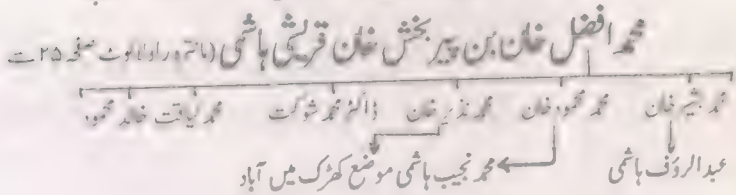 محمد افضل خان بن پیر بخش خان قریشی ہاشمی (مانترہ راولاکوٹ صفحہ ۲۵ سے
محمد بشیر خان محمد محمود خان محمد نذیر خان ڈاکٹر محمد شوکت محمد لیاقت خالد محمود
عبدالرؤف ہاشمی محمد نجیب ہاشمی موضع کھڑک میں آباد